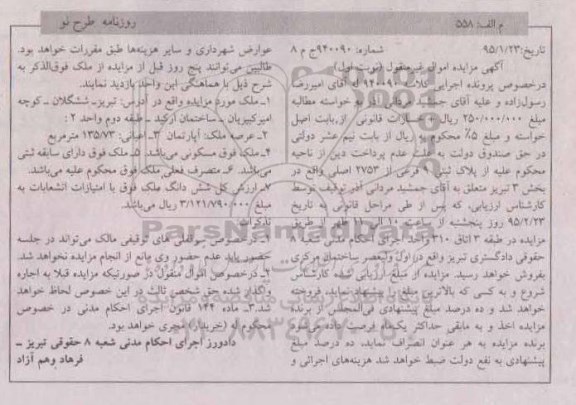 روزنامه طرح نو
م الف: ۵۵۸
تاریخ:۹۵/۱/۲۳ شماره: ۹۴۰۰۹۰ج م ۸
آگهی مزایده اموال غیرمنقول (نوبت اول)
درخصوص پرونده اجرایی کلاسه ۹۴۰۰۹۰ له آقای امیررضا
رسول‌زاده و علیه آقای جمشید مردانی آذر به خواسته مطالبه
مبلغ ۲۵۰/۰۰۰/۰۰۰ ریال + خسارات قانونی از بابت اصل
خواسته و مبلغ ۵٪ محکوم به ریال از بابت نیم عشر دولتی
در حق صندوق دولت به علت عدم پرداخت دین از ناحیه
محکوم علیه از پلاک ثبتی ۹ فرعی از ۲۷۵۳ اصلی واقع در
بخش ۳ تبریز متعلق به آقای جمشید مردانی آذر توقیف توسط
کارشناس ارزیابی، که پس از طی مراحل قانونی به تاریخ
۹۵/۲/۲۳ روز پنجشنبه از ساعت ۱۰ الی ۱۱ ظهر از طریق
مزایده در طبقه ۳ اتاق ۳۱۰ واحد اجرای احکام مدنی شعبه ۸
حقوقی دادگستری تبریز واقع در اول ولیعصر ساختمان مرکزی
بفروش خواهد رسید. مزایده از مبلغ ارزیابی شده کارشناس
شروع و به کسی که بالاترین مبلغ را پیشنهاد نماید، فروخته
خواهد شد و ده درصد مبلغ پیشنهادی فی‌المجلس از برنده
مزایده اخذ و به مابقی حداکثر یک‌ماه فرصت داده می‌شود
برنده مزایده به هر عنوان انصراف نماید، ده درصد مبلغ
پیشنهادی به نفع دولت ضبط خواهد شد هزینه‌های اجرائی و
عوارض شهرداری و سایر هزینه‌ها طبق مقررات خواهد بود.
طالبین می‌توانند پنج روز قبل از مزایده از ملک فوق‌الذکر به
شرح ذیل با هماهنگی این واحد بازدید نمایند.
۱ـ ملک مورد مزایده واقع در آدرس: تبریزـ ششگلان ـ کوچه
امیرکبیریان ـ ساختمان ارکید ـ طبقه دوم واحد ۲ :
۲ـ عرصه ملک: آپارتمان ۳ـ اعیانی: ۱۳۵/۷۳ مترمربع
۴ـ ملک فوق مسکونی می‌باشد. ۵ـ ملک فوق دارای سابقه ثبتی
می‌باشد. ۶ـ متصرف فعلی ملک فوق محکوم علیه می‌باشد.
۷ـ ارزش کل شش دانگ ملک فوق با امتیازات انشعابات به
مبلغ ۳/۱۲۱/۷۹۰/۰۰۰ ریال می‌باشد.
تذکرات
۱ـ درخصوص ... توقیفی مالک می‌تواند در جلسه
حضور یابد عدم حضور وی مانع از انجام مزایده نخواهد شد.
۲ـ درخصوص اموال منقول در صورتیکه مزایده قبلا به اجاره
واگذار شده حق شخص ثالث در این خصوص لحاظ خواهد
شد.۳ـ ماده ۱۴۴ قانون اجرای احکام مدنی در خصوص
محکوم له (خریدار) مجری خواهد بود.
دادورز اجرای احکام مدنی شعبه ۸ حقوقی تبریز ـ
فرهاد وهم آزاد
ParsNamadData